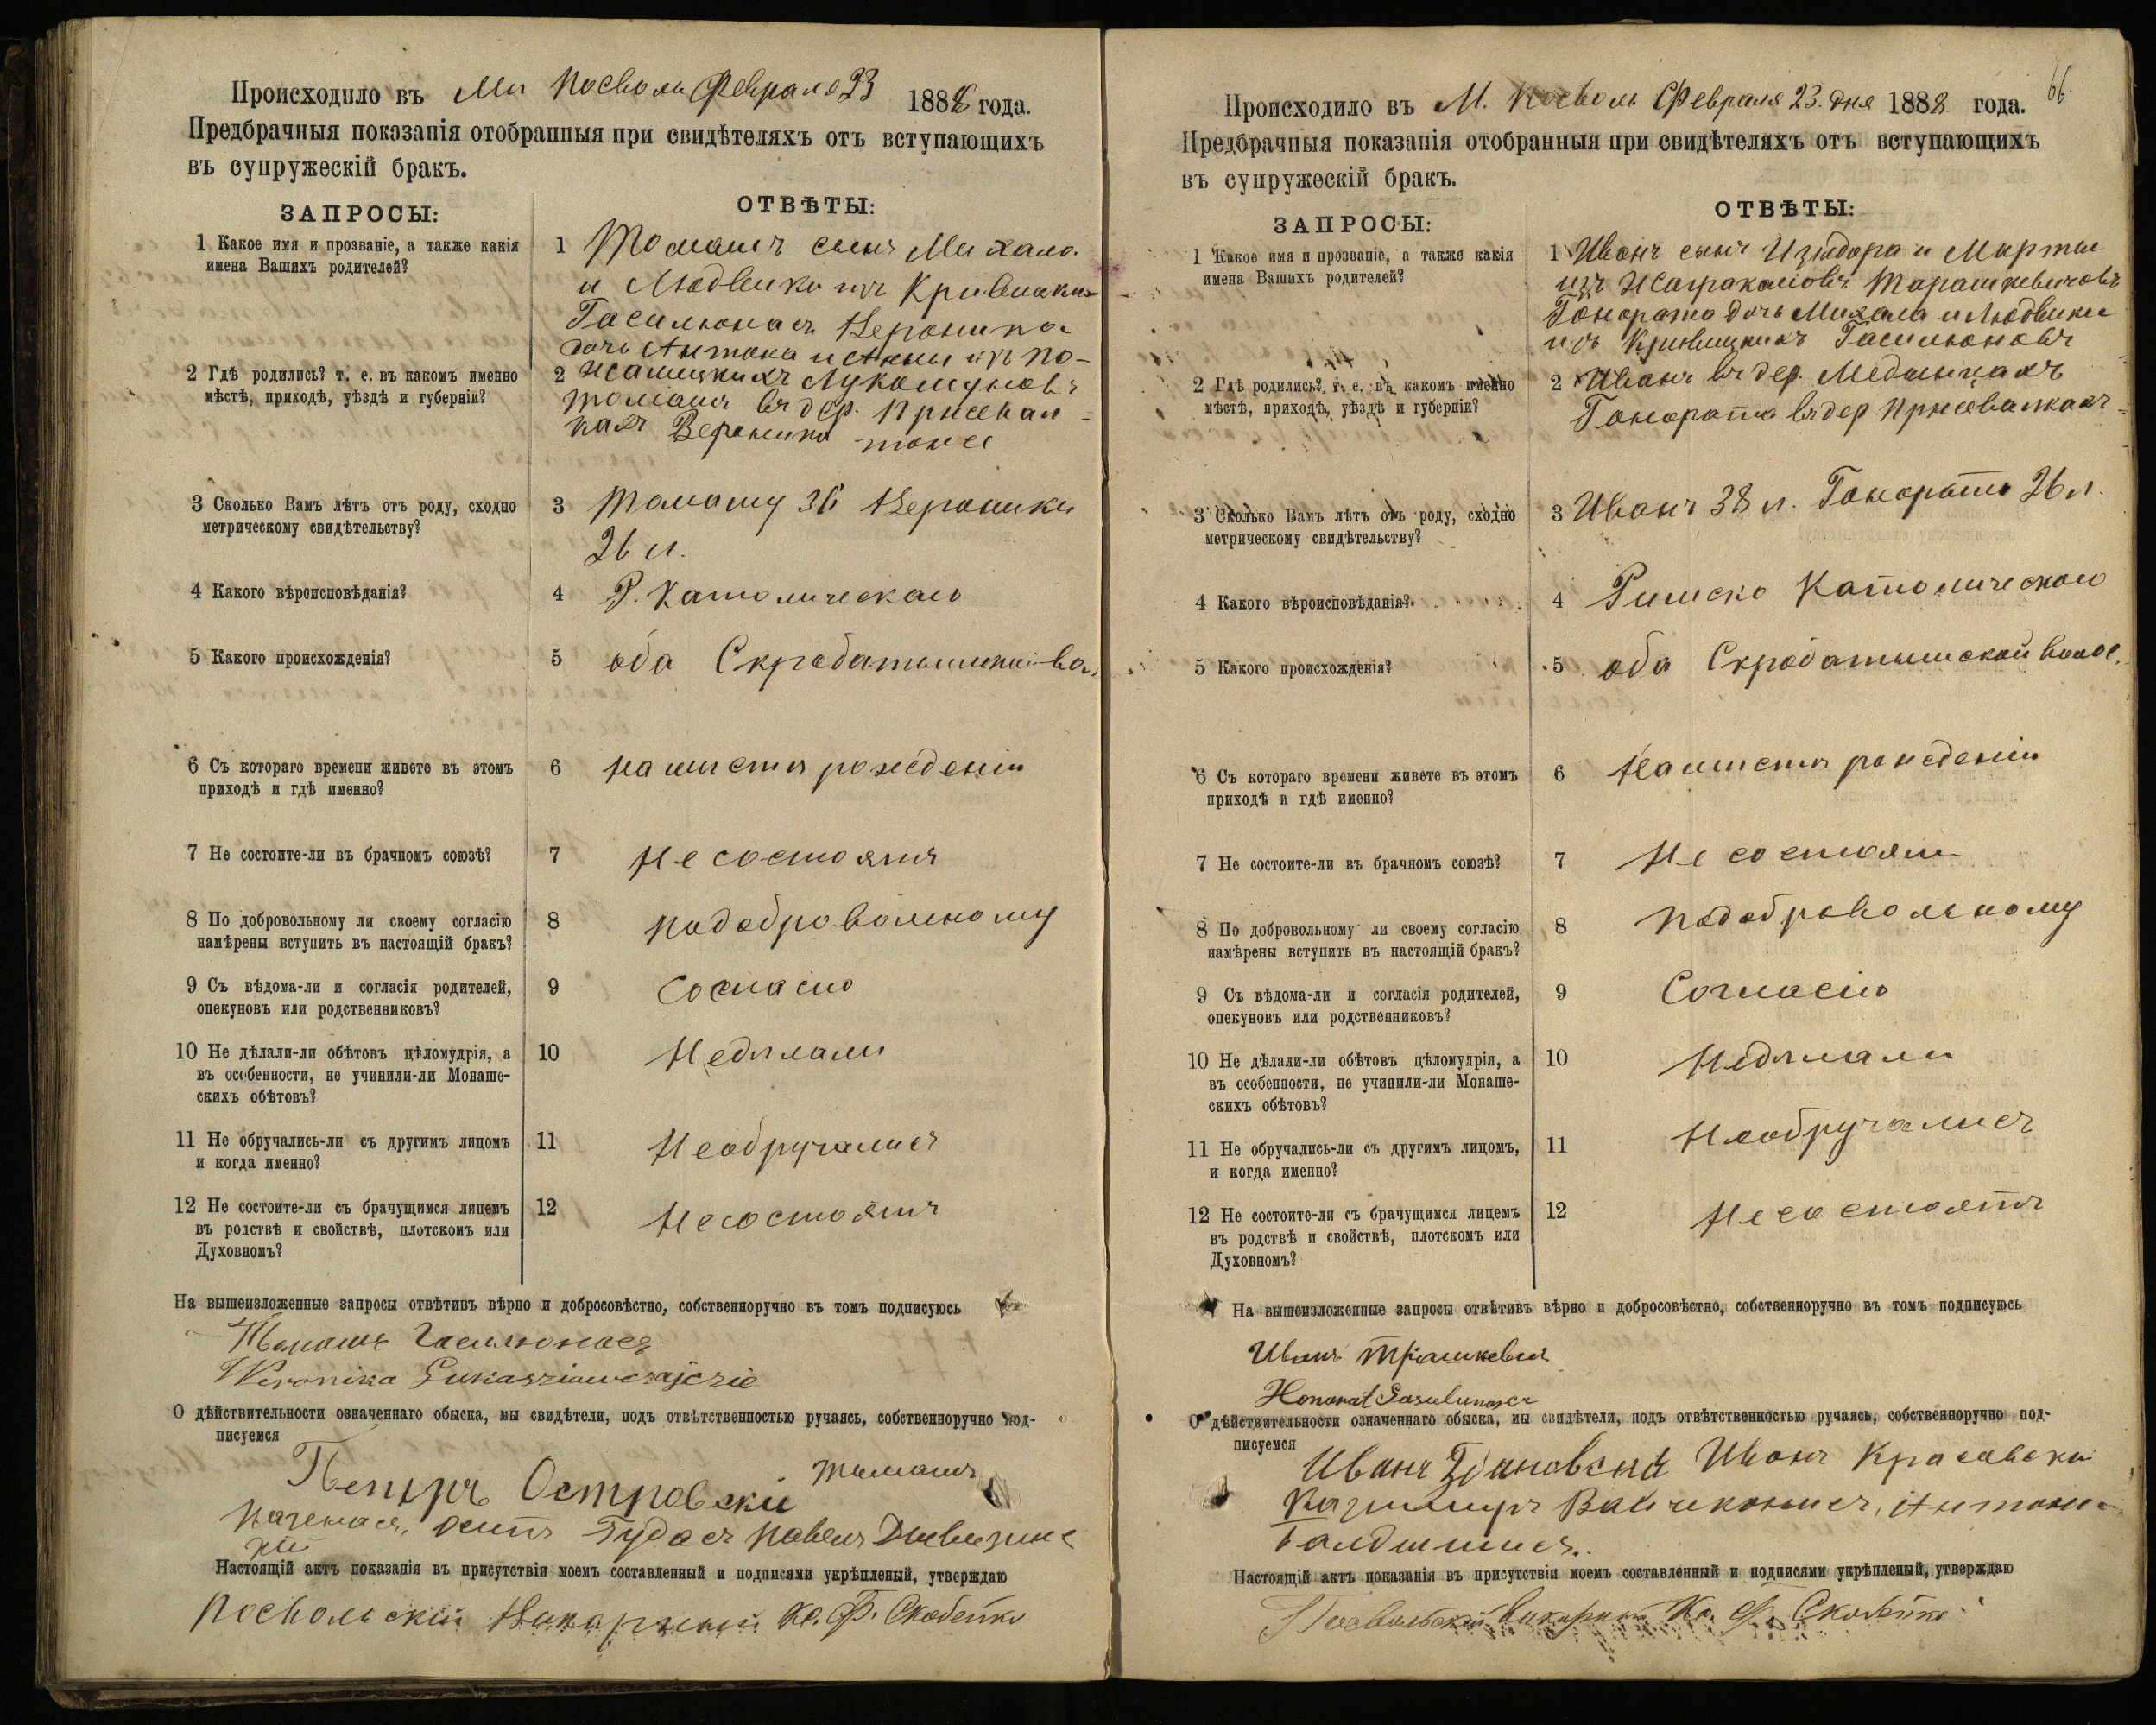 Происходило въ Ми Посволь Февраля 23 1888 года.
Предбрачныя показанія отобранныя при свидѣтеляхъ отъ вступающихъ
въ супружескій бракъ.
ЗАПРОСЫ:
ОТВѢТЫ:
1 Какое имя и прозваніе, а также какія
имена Вашихъ родителей?
1 Томашъ сынъ Михала
и Людвики изъ Кривицки
Гасилюнасъ Вероника
дочь Антона и Анны изъ
2 Гдѣ родились? т. е. въ какомъ именно
мѣстѣ, приходѣ, уѣздѣ и губерніи?
2
Томашъ въ дер. Присвал-
кахъ Вероника тоже
3 Сколько Вамъ лѣтъ отъ роду, сходно
метрическому свидѣтельству?
3 Томашу 36 Вероники
26 л.
4 Какого вѣроисповѣданія?
4 Р. Католическаго
5 Какого происхожденія?
5 оба
6 Съ котораго времени живете въ этомъ
приходѣ и гдѣ именно?
6 На мѣстѣ рожденія
7 Не состоите-ли въ брачномъ союзѣ?
7 Не состоятъ
8 По добровольному ли своему согласію
намѣрены вступить въ настоящій бракъ?
8 По добровольному
9 Съ вѣдома-ли и согласія родителей,
опекуновъ или родственниковъ?
9 Согласно
10 Не дѣлали-ли обѣтовъ цѣломудрія, а
въ особенности, не учинили-ли Монаше-
скихъ обѣтовъ?
10 Не дѣлали
11 Не обручались-ли съ другимъ лицомъ
и когда именно?
11 Не обручались
12 Не состоите-ли съ брачущимся лицемъ
въ родствѣ и свойствѣ, плотскомъ или
Духовномъ?
12 Не состоятъ
На вышеизложенные запросы отвѣтивъ вѣрно и добросовѣстно, собственноручно въ томъ подписуюсь
Томашъ Гасилюнасъ
Weronika
О дѣйствительности означеннаго обыска, мы свидѣтели, подъ отвѣтственностью ручаясь, собственноручно под-
писуемся
Петръ Островскій Томашъ
Осипъ Гудасъ Павелъ
Настоящій актъ показанія въ присутствіи моемъ составленный и подписями укрѣпленый, утверждаю
Посвольскій Викарный Кс. Ф. Скобейко
66.
Происходило въ М. Посволь Февраля 23 дня 1888 года.
Предбрачныя показанія отобранныя при свидѣтеляхъ отъ вступающихъ
въ супружескій бракъ.
ЗАПРОСЫ:
ОТВѢТЫ:
1 Какое имя и прозваніе, а также какія
имена Вашихъ родителей?
1 Иванъ сынъ Изидора и Марты
изъ Тарашкевичовъ
Гонората дочь Михала и Людвики
изъ Кривицкихъ Гасилюновъ
2 Гдѣ родились? т. е. въ какомъ именно
мѣстѣ, приходѣ, уѣздѣ и губерніи?
2 Иванъ въ дер. Мединицахъ
Гонората въ дер Присвалкахъ
3 Сколько Вамъ лѣтъ отъ роду, сходно
метрическому свидѣтельству?
3 Иванъ 38 л. Гонората 26 л.
4 Какого вѣроисповѣданія?
4 Римско Католическаго
5 Какого происхожденія?
5 оба Скробатышской волос.
6 Съ котораго времени живете въ этомъ
приходѣ и гдѣ именно?
6 На мѣстѣ рожденія
7 Не состоите-ли въ брачномъ союзѣ?
7 Не состоятъ
8 По добровольному ли своему согласію
намѣрены вступить въ настоящій бракъ?
8 По добровольному
9 Съ вѣдома-ли и согласія родителей,
опекуновъ или родственниковъ?
9 Согласно
10 Не дѣлали-ли обѣтовъ цѣломудрія, а
въ особенности, не учинили-ли Монаше-
скихъ обѣтовъ?
10 Не дѣлали
11 Не обручались-ли съ другимъ лицомъ,
и когда именно?
11 Не обручались
12 Не состоите-ли съ брачущимся лицемъ
въ родствѣ и свойствѣ, плотскомъ или
Духовномъ?
12 Не состоятъ
На вышеизложенные запросы отвѣтивъ вѣрно и добросовѣстно, собственноручно въ томъ подписуюсь
Иванъ
Honorat
О дѣйствительности означеннаго обыска, мы свидѣтели, подъ отвѣтственностью ручаясь, собственноручно под-
писуемся
Иванъ Иванъ Красовски
Казимиръ
Настоящій актъ показанія въ присутствіи моемъ составленный и подписями укрѣпленый, утверждаю
Посвольскій Викарный Кс. Ф. Скобейко